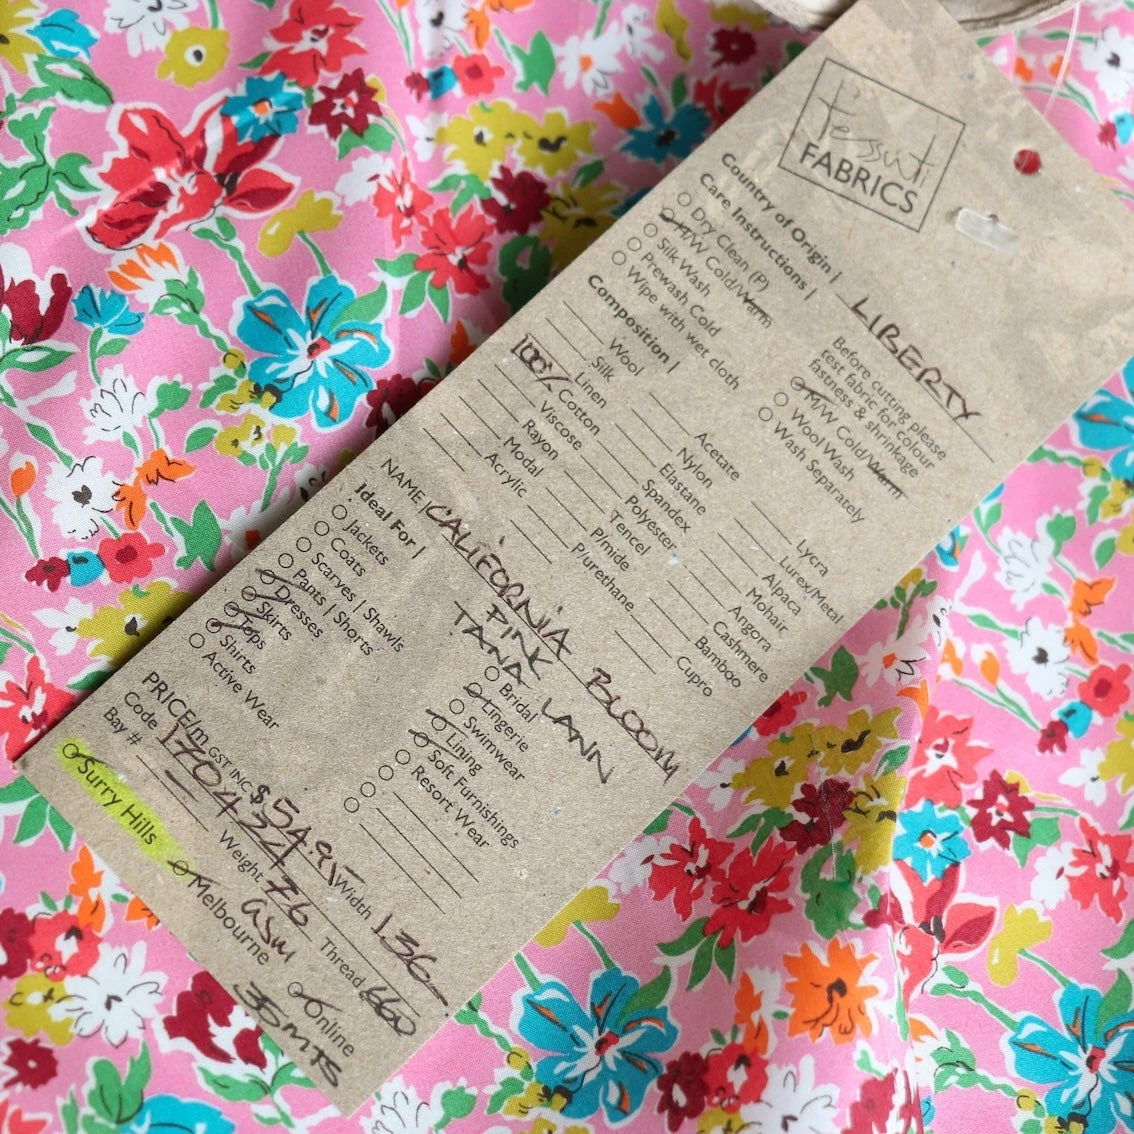 Tessuti
FABRICS
Country of Origin | LIBERTY
Care Instructions |
Dry Clean (P)
M/W Cold/Warm
Silk Wash
Prewash Cold
Wipe with wet cloth
Before cutting please
test fabric for colour
fastness & shrinkage
M/W Cold/Warm
Wool Wash
Wash Separately
Composition |
Wool
Silk
Linen
100% Cotton
Viscose
Rayon
Modal
Acrylic
Acetate
Nylon
Elastane
Spandex
Polyester
Tencel
P/mide
P/urethane
Lycra
Lurex/Metal
Alpaca
Mohair
Angora
Cashmere
Bamboo
Cupro
NAME | CALIFORNIA BLOOM
PINK
TANA LAWN
Ideal For |
Jackets
Coats
Scarves | Shawls
Pants | Shorts
Dresses
Skirts
Tops
Shirts
Active Wear
Bridal
Lingerie
Swimwear
Lining
Soft Furnishings
Resort Wear
PRICE/m GST INC $54.95 Width 136
Code 1704324
Bay # Weight 76 Thread 660
GSM
Surry Hills
Melbourne
Online
35MTS